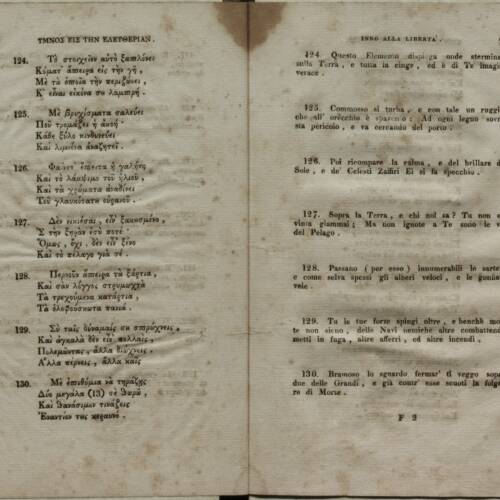 ΥΜΝΟΣ ΕΙΣ ΤΗΝ ΕΛΕΥΘΕΡΙΑΝ.
124. Τὸ στοιχεῖον αὐτὸ ξαπλόνει
Κύματ' ἄπειρα εἰς τὴν γῆ,
Μὲ τὰ ὁποῖα τὴν περιζόνει
Κ' εἶναι εἰκόνα σο λαμπρή.
125. Μὲ βρυχίσματα σαλεύει
Ποῦ τρομάζει ἡ ἀκοή
Κάθε ξύλο κινδυνεύει
Καὶ λιμιῶνα ἀναζητεῖ.
126. Φαίνετ' ἔπειτα ἡ γαλήνη
Καὶ τὸ λάμψιμο τοῦ ἡλιοῦ,
Καὶ τὰ χρώματα ἀναδίνει
Τοῦ γλαυκότατου οὐρανοῦ.
127. Δὲν νικιέσαι, εἶν' ξακουσμένο,
Σ τὴν ξηρὰν ἐσὺ ποτέ
Ὅμως, ὄχι, δὲν εἶν' ξένο
Καὶ τὸ πέλαγο γιὰ σέ.
128. Περνοῦν ἄπειρα τὰ ξάρτια,
Καὶ σὰν λόγγος στρυμωχτὰ
Τὰ τρεχούμενα κατάρτια,
Τὰ ὁλοφούσκωτα πανιά.
129. Σὺ ταῖς δύναμαίς σου σπρώχνεις,
Καὶ ἀγκαλὰ δὲν εἶν' πολλαίς,
Πολεμῶντας, ἄλλα διώχνεις,
Ἄλλα πέρνεις, ἄλλα καῖς
130. Μὲ ἐπιθύμια νὰ τηράζῃς
Δύο μεγάλα (13) σὲ θωρῶ,
Καὶ θανάσιμον τινάζεις
Ἐναντίον τους κεραυνό.
INNO ALLA LIBERTA'.
124. Questo Elemento dispiega onde stermine
sulla Terra, e tutta la cinge, ed è di Te imagi
verace.
125. Commosso si turba, e con tale un ruggi
che all' orecchio è spavento: Ad ogni legno sovr
sta pericolo, e va cercando del porto.
126. Poi ricompare la calma, e del brillare d
Sole, e de' Celesti Zaffiri Ei si fa specchio.
127. Sopra la Terra, e chi nol sa? Tu non s
vinta giammai; Ma non ignote a Te sono le v
del Pelago.
128. Passano (per esso) innumerabili le sarte
e come selva spessi gli alberi veloci, e le gonfia
vele.
129. Tu le tue forze spingi oltre, e benchè mo
te non sieno, delle Navi nemiche altre combattend
metti in fuga, altre afferri, ed altre incendi.
130. Bramoso lo sguardo fermar' ti veggo sopr
due delle Grandi, e già contr' esse scuoti la folgo
re di Morte.
F 2